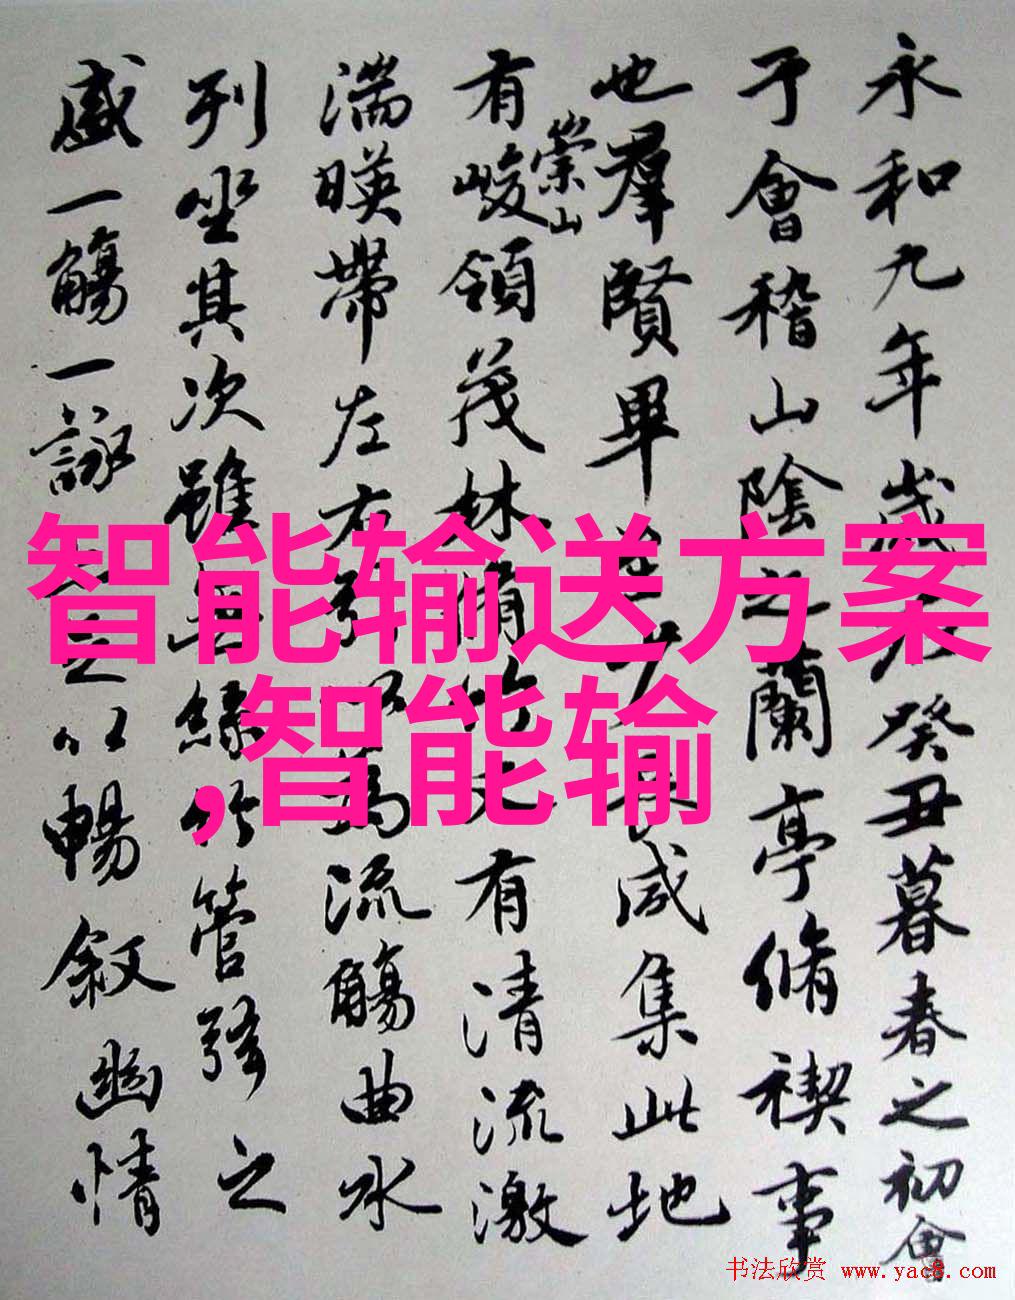 永和九年歲在癸丑暮春之初會
于會稽山陰之蘭亭脩禊事
也羣賢畢至少長咸集此地
有崇山峻領茂林脩竹又有清流激
湍暎帶左右引以為流觴曲水
列坐其次雖無絲竹管弦之
盛一觴一詠亦足以暢敘幽情
智能输送方案
,智能输
书法欣赏 www.yac8.com